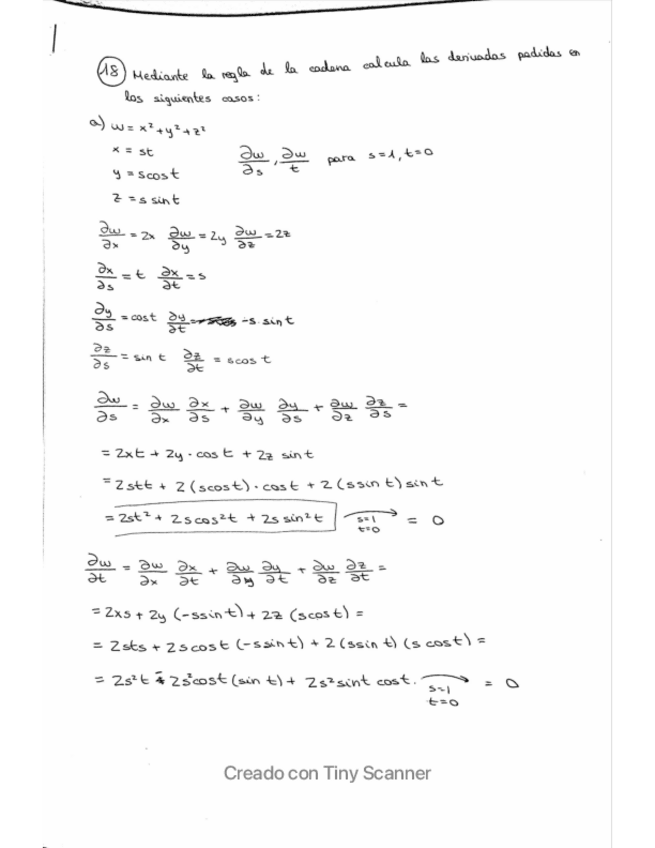 18 Mediante la regla de la cadena calcula las derivadas pedidas en
los siguientes casos:
a) w = x² + y² + z²
x = st ∂w/∂s , ∂w/t para s=1, t=0
y = s cos t
z = s sin t
∂w/∂x = 2x ∂w/∂y = 2y ∂w/∂z = 2z
∂x/∂s = t ∂x/∂t = s
∂y/∂s = cos t ∂y/∂t = -s sin t
∂z/∂s = sin t ∂z/∂t = s cos t
∂w/∂s = ∂w/∂x ∂x/∂s + ∂w/∂y ∂y/∂s + ∂w/∂z ∂z/∂s =
= 2xt + 2y · cos t + 2z sin t
= 2stt + 2(s cos t) · cos t + 2(s sin t) sin t
= 2st² + 2s cos² t + 2s sin² t → s=1 t=0 = 0
∂w/∂t = ∂w/∂x ∂x/∂t + ∂w/∂y ∂y/∂t + ∂w/∂z ∂z/∂t =
= 2xs + 2y (-s sin t) + 2z (s cos t) =
= 2sts + 2s cos t (-s sin t) + 2(s sin t) (s cos t) =
= 2s²t - 2s² cos t (sin t) + 2s² sin t cos t. → s=1 t=0 = 0
Creado con Tiny Scanner